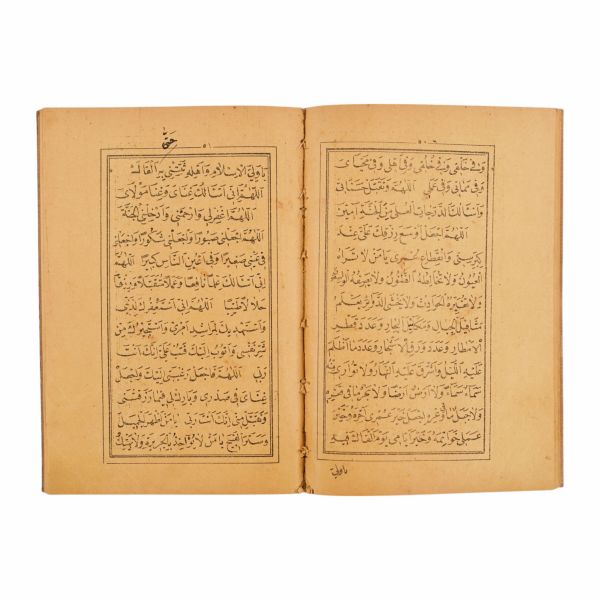 ٥٠٦
وفي خلقي وفي خلقي وفي اهلي وفي محياي
وفي مماتي وفي عملي اللهم وتقبل حسناتي
واسألك الدرجات العلى من الجنة امين
اللهم اجعل اوسع رزقك علي عند
كبر سني وانقطاع عمري يا من لا تراه
العيون ولا تخالطه الظنون ولا يصفه الواصفون
ولا تغيره الحوادث ولا يخشى الدوائر يعلم
مثاقيل الجبال ومكائيل البحار وعدد قطر
الامطار وعدد ورق الاشجار وعدد ما اظلم
عليه الليل واشرق عليه النهار ولا توارى منه
سماء سماء ولا ارض ارضا ولا بحر ما في قعره
ولا جبل ما في وعره اجعل خير عمري اخره وخير
عملي خواتيمه وخير ايامي يوم القاك فيه
ياولي
٥١
حتى
ياولي الاسلام واهله ثبتني به القاك
اللهم اني اسألك غناي وغنا مولاي
اللهم اغفر لي وارحمني وادخلني الجنة
اللهم اجعلني صبورا واجعلني شكورا واجعلني
في عيني صغيرا وفي اعين الناس كبيرا اللهم
اني اسألك علما نافعا وعملا متقبلا ورزقا
حلالا طيبا اللهم اني استغفرك لذنبي
واستهديك لمراشد امري واستجيرك من
شر نفسي واتوب اليك فتب علي انك انت
ربي اللهم فاجعل رغبتي اليك واجعل
غناي في صدري وبارك لي فيما رزقتني
وتقبل مني انك انت ربي يا من اظهر الجميل
وستر القبيح يا من لا يؤاخذ بالجريرة ولا يهتك